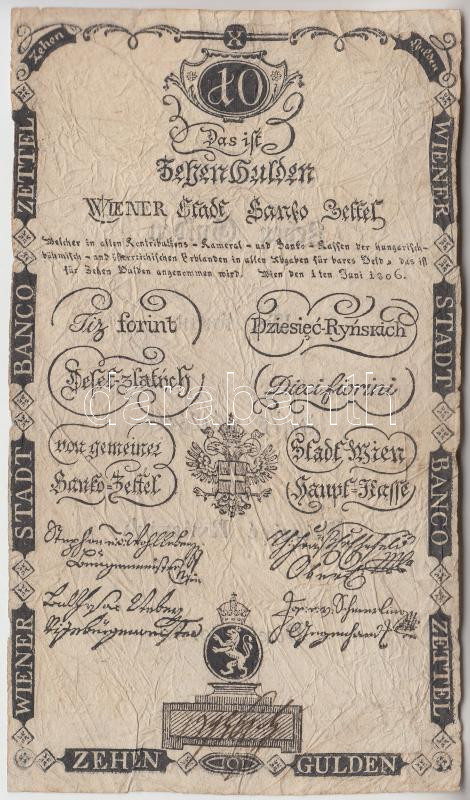 Zehen X Gulden
10
Das ist
Zehen Gulden
WIENER Stadt Banko Zettel
Welcher in allen Kontributions-Kameral-und Banko-Kassen der hungarisch-
böhmisch-und österreichischen Erblanden in allen Abgaben für bares Geld, das ist
für Zehen Gulden angenommen wird. Wien den 1ten Juni 1806.
Tiz forint
Dziesięć-Ryńskich
Deset-zlatych
Dieci fiorini
von gemeiner
Stadt Wien
Banko-Zettel
Haupt-Kasse
darabanth
Stephan
Burgermeister
Obereinn
Vizebürgermeister
Gegenhandl
WIENER STADT BANCO ZETTEL
WIENER STADT BANCO ZETTEL
ZEHEN 10 GULDEN